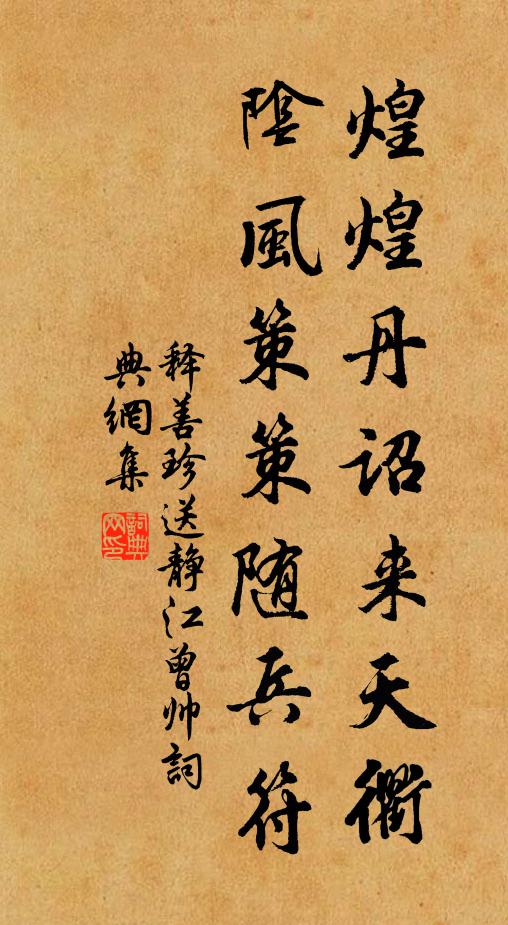 煌煌丹诏来天衢
陰風策策随兵符
释善珍送静江曾帅詞
典網集
詞典
网印